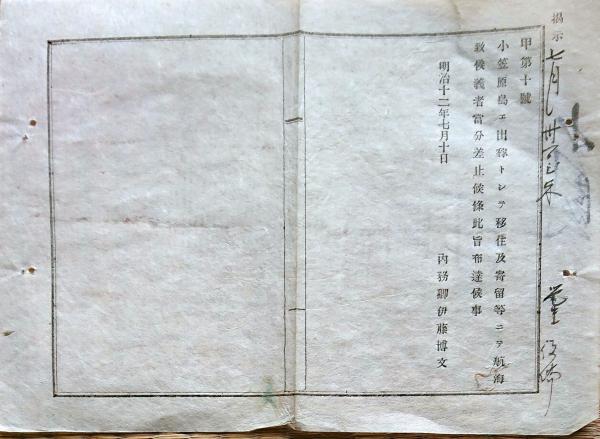 掲示
七月
甲第十號
小笠原島エ出稼トシテ移住及寄留等ニテ航海
致候義者當分差止候條此旨布達候事
明治十二年七月十日
內務卿伊藤博文